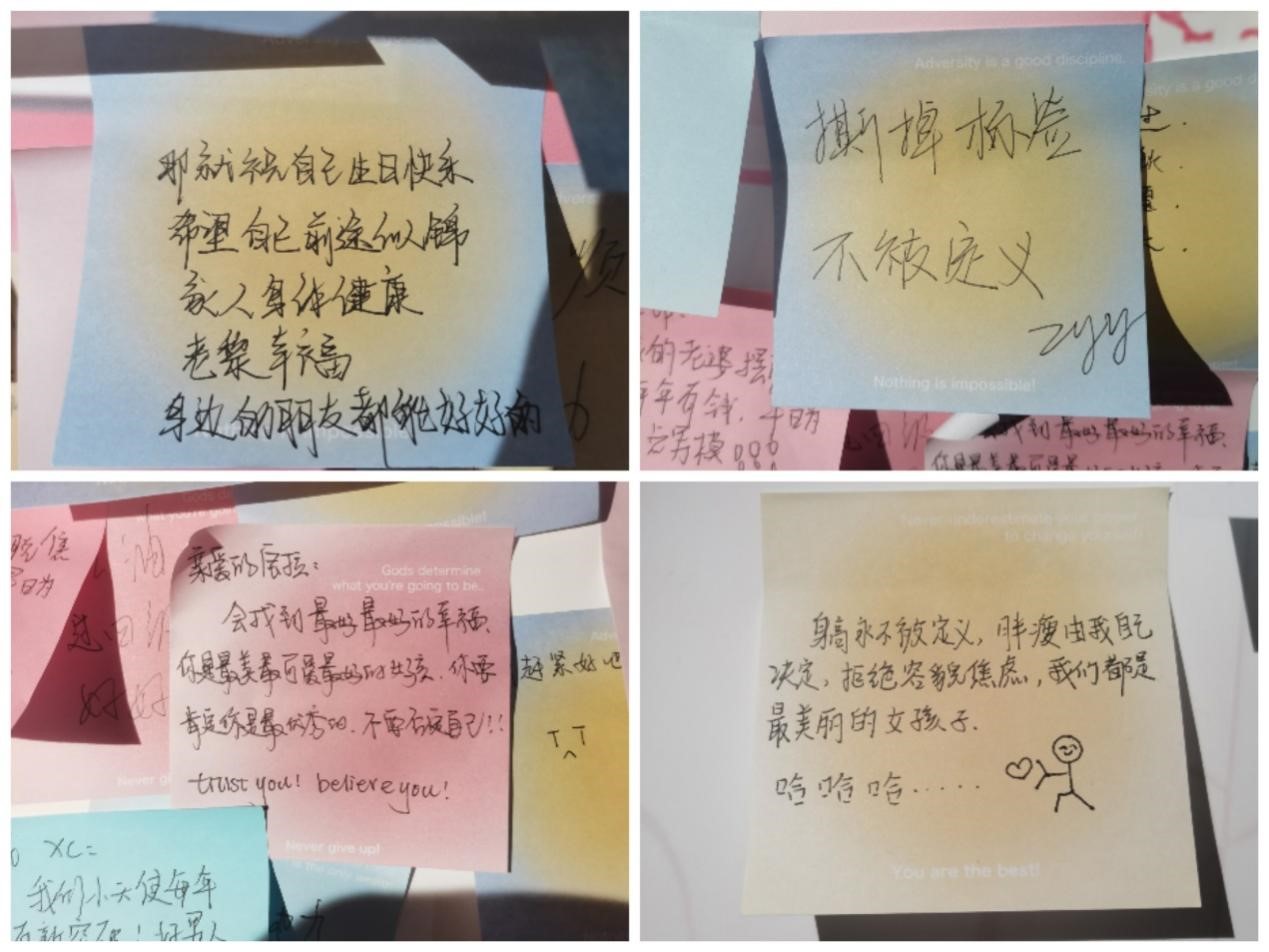 那就祝自己生日快乐
希望自己前途似锦
家人身体健康
老黎幸福
身边的朋友都能好好的
Adversity is a good discipline.
撕掉标签
不被定义
zyy
Nothing is impossible!
的老婆
年有钱
男模
找到最好最好的幸福
Gods determine
what you're going to be..
会找到最好最好的幸福.
你是最美最可爱最好的女孩. 你要
肯定你是最优秀的. 不要否定自己!!
trust you! believe you!
Never give up!
赶紧好吧
T^T
xc:
我们小天使每年
Never underestimate your power
to change yourself
身高永不被定义, 胖瘦由我自己
决定, 拒绝容貌焦虑, 我们都是
最美丽的女孩子.
哈哈哈.....
You are the best!